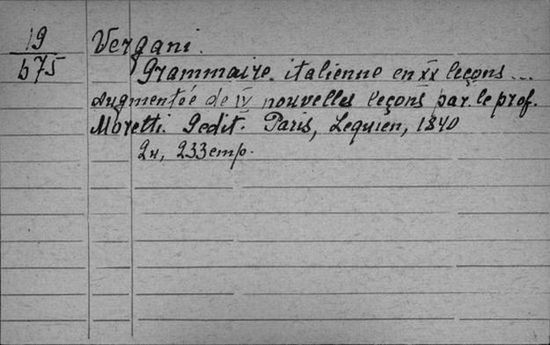 19
675
Vergani.
Grammaire italienne en XX leçons...
augmentée de IV nouvelles leçons par le prof.
Moretti. 2edit. Paris, Lequien, 1840
2н, 233 стр.